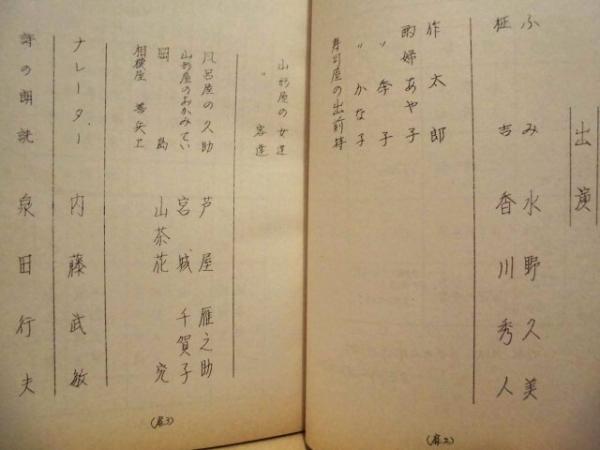 出演
ふみ 水野久美
柾吉 香川秀人
作太郎
酌婦あや子
〃 幸子
〃 かな子
寿司屋の出前持
山形屋の女達
〃 客達
風呂屋の久助 芦屋雁之助
山形屋のおかみてい 宮城千賀子
岡島 山茶花究
相模屋
ナレーター 内藤武敏
詩の朗読 泉田行夫